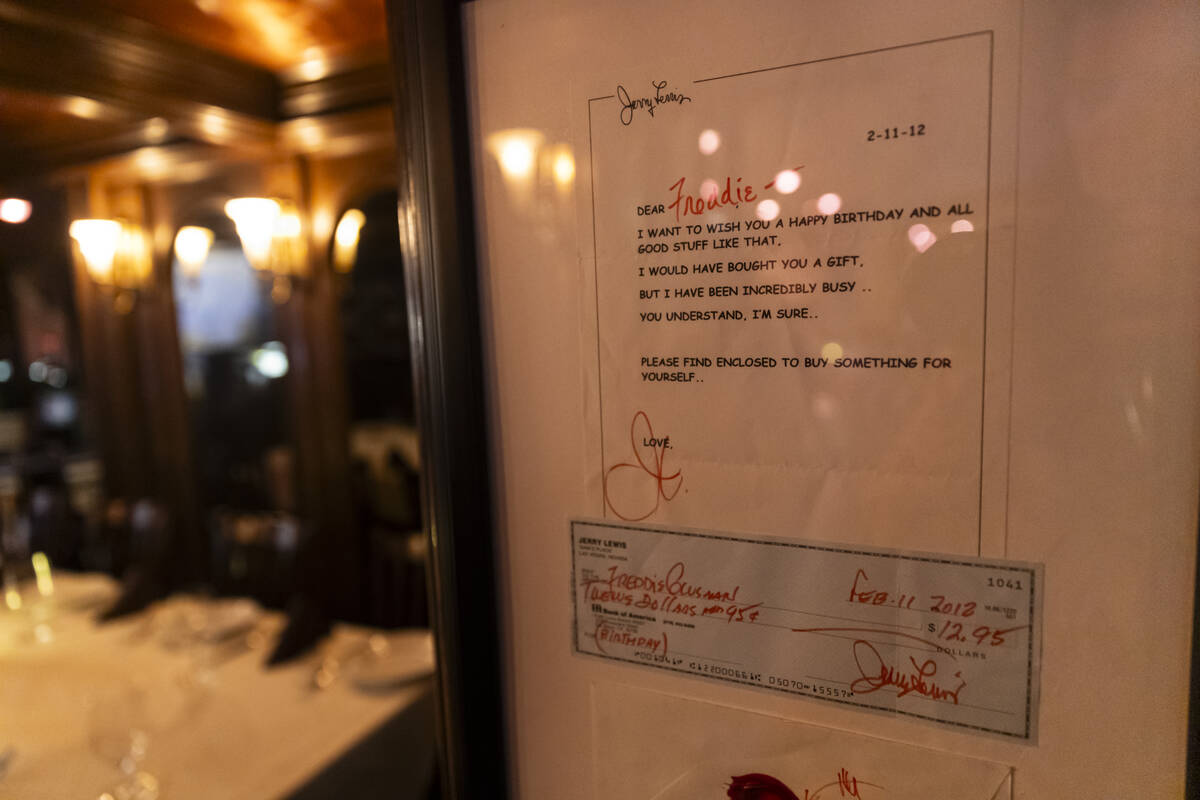 Jerry Lewis
2-11-12
DEAR Freddie -
I WANT TO WISH YOU A HAPPY BIRTHDAY AND ALL
GOOD STUFF LIKE THAT,
I WOULD HAVE BOUGHT YOU A GIFT,
BUT I HAVE BEEN INCREDIBLY BUSY ..
YOU UNDERSTAND, I'M SURE..
PLEASE FIND ENCLOSED TO BUY SOMETHING FOR
YOURSELF..
LOVE,
JERRY LEWIS
LAS VEGAS, NEVADA
1041
FEB. 11 2012
FREDDIE
$ 12.95
DOLLARS
95¢
Bank of America
FOR (BIRTHDAY)
Jerry Lewis